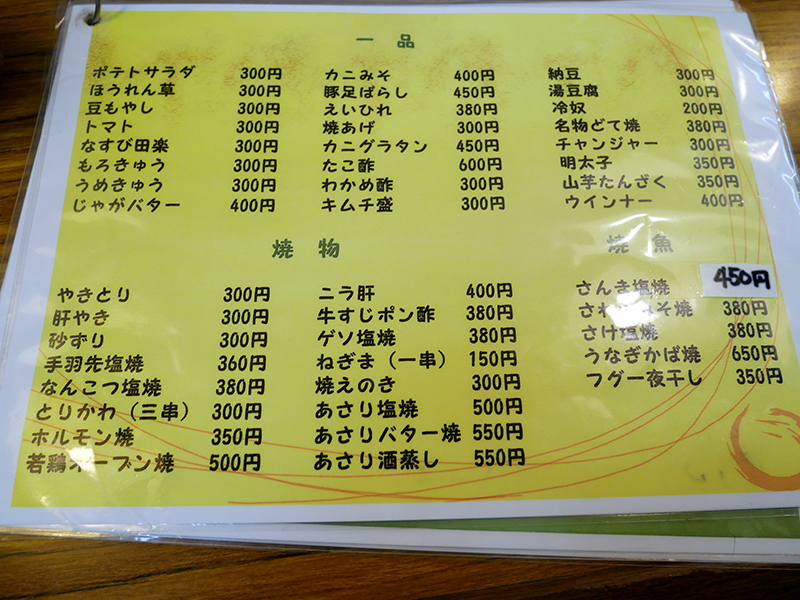 一品
ポテトサラダ 300円
ほうれん草 300円
豆もやし 300円
トマト 300円
なすび田楽 300円
もろきゅう 300円
うめきゅう 300円
じゃがバター 400円
カニみそ 400円
豚足ばらし 450円
えいひれ 380円
焼あげ 300円
カニグラタン 450円
たこ酢 600円
わかめ酢 300円
キムチ盛 300円
納豆 300円
湯豆腐 300円
冷奴 200円
名物どて焼 380円
チャンジャー 300円
明太子 350円
山芋たんざく 350円
ウインナー 400円
焼物
やきとり 300円
肝やき 300円
砂ずり 300円
手羽先塩焼 360円
なんこつ塩焼 380円
とりかわ（三串） 300円
ホルモン焼 350円
若鶏オーブン焼 500円
ニラ肝 400円
牛すじポン酢 380円
ゲソ塩焼 380円
ねぎま（一串） 150円
焼えのき 300円
あさり塩焼 500円
あさりバター焼 550円
あさり酒蒸し 550円
焼魚
さんま塩焼 450円
さわらみそ焼 380円
さけ塩焼 380円
うなぎかば焼 650円
フグ一夜干し 350円